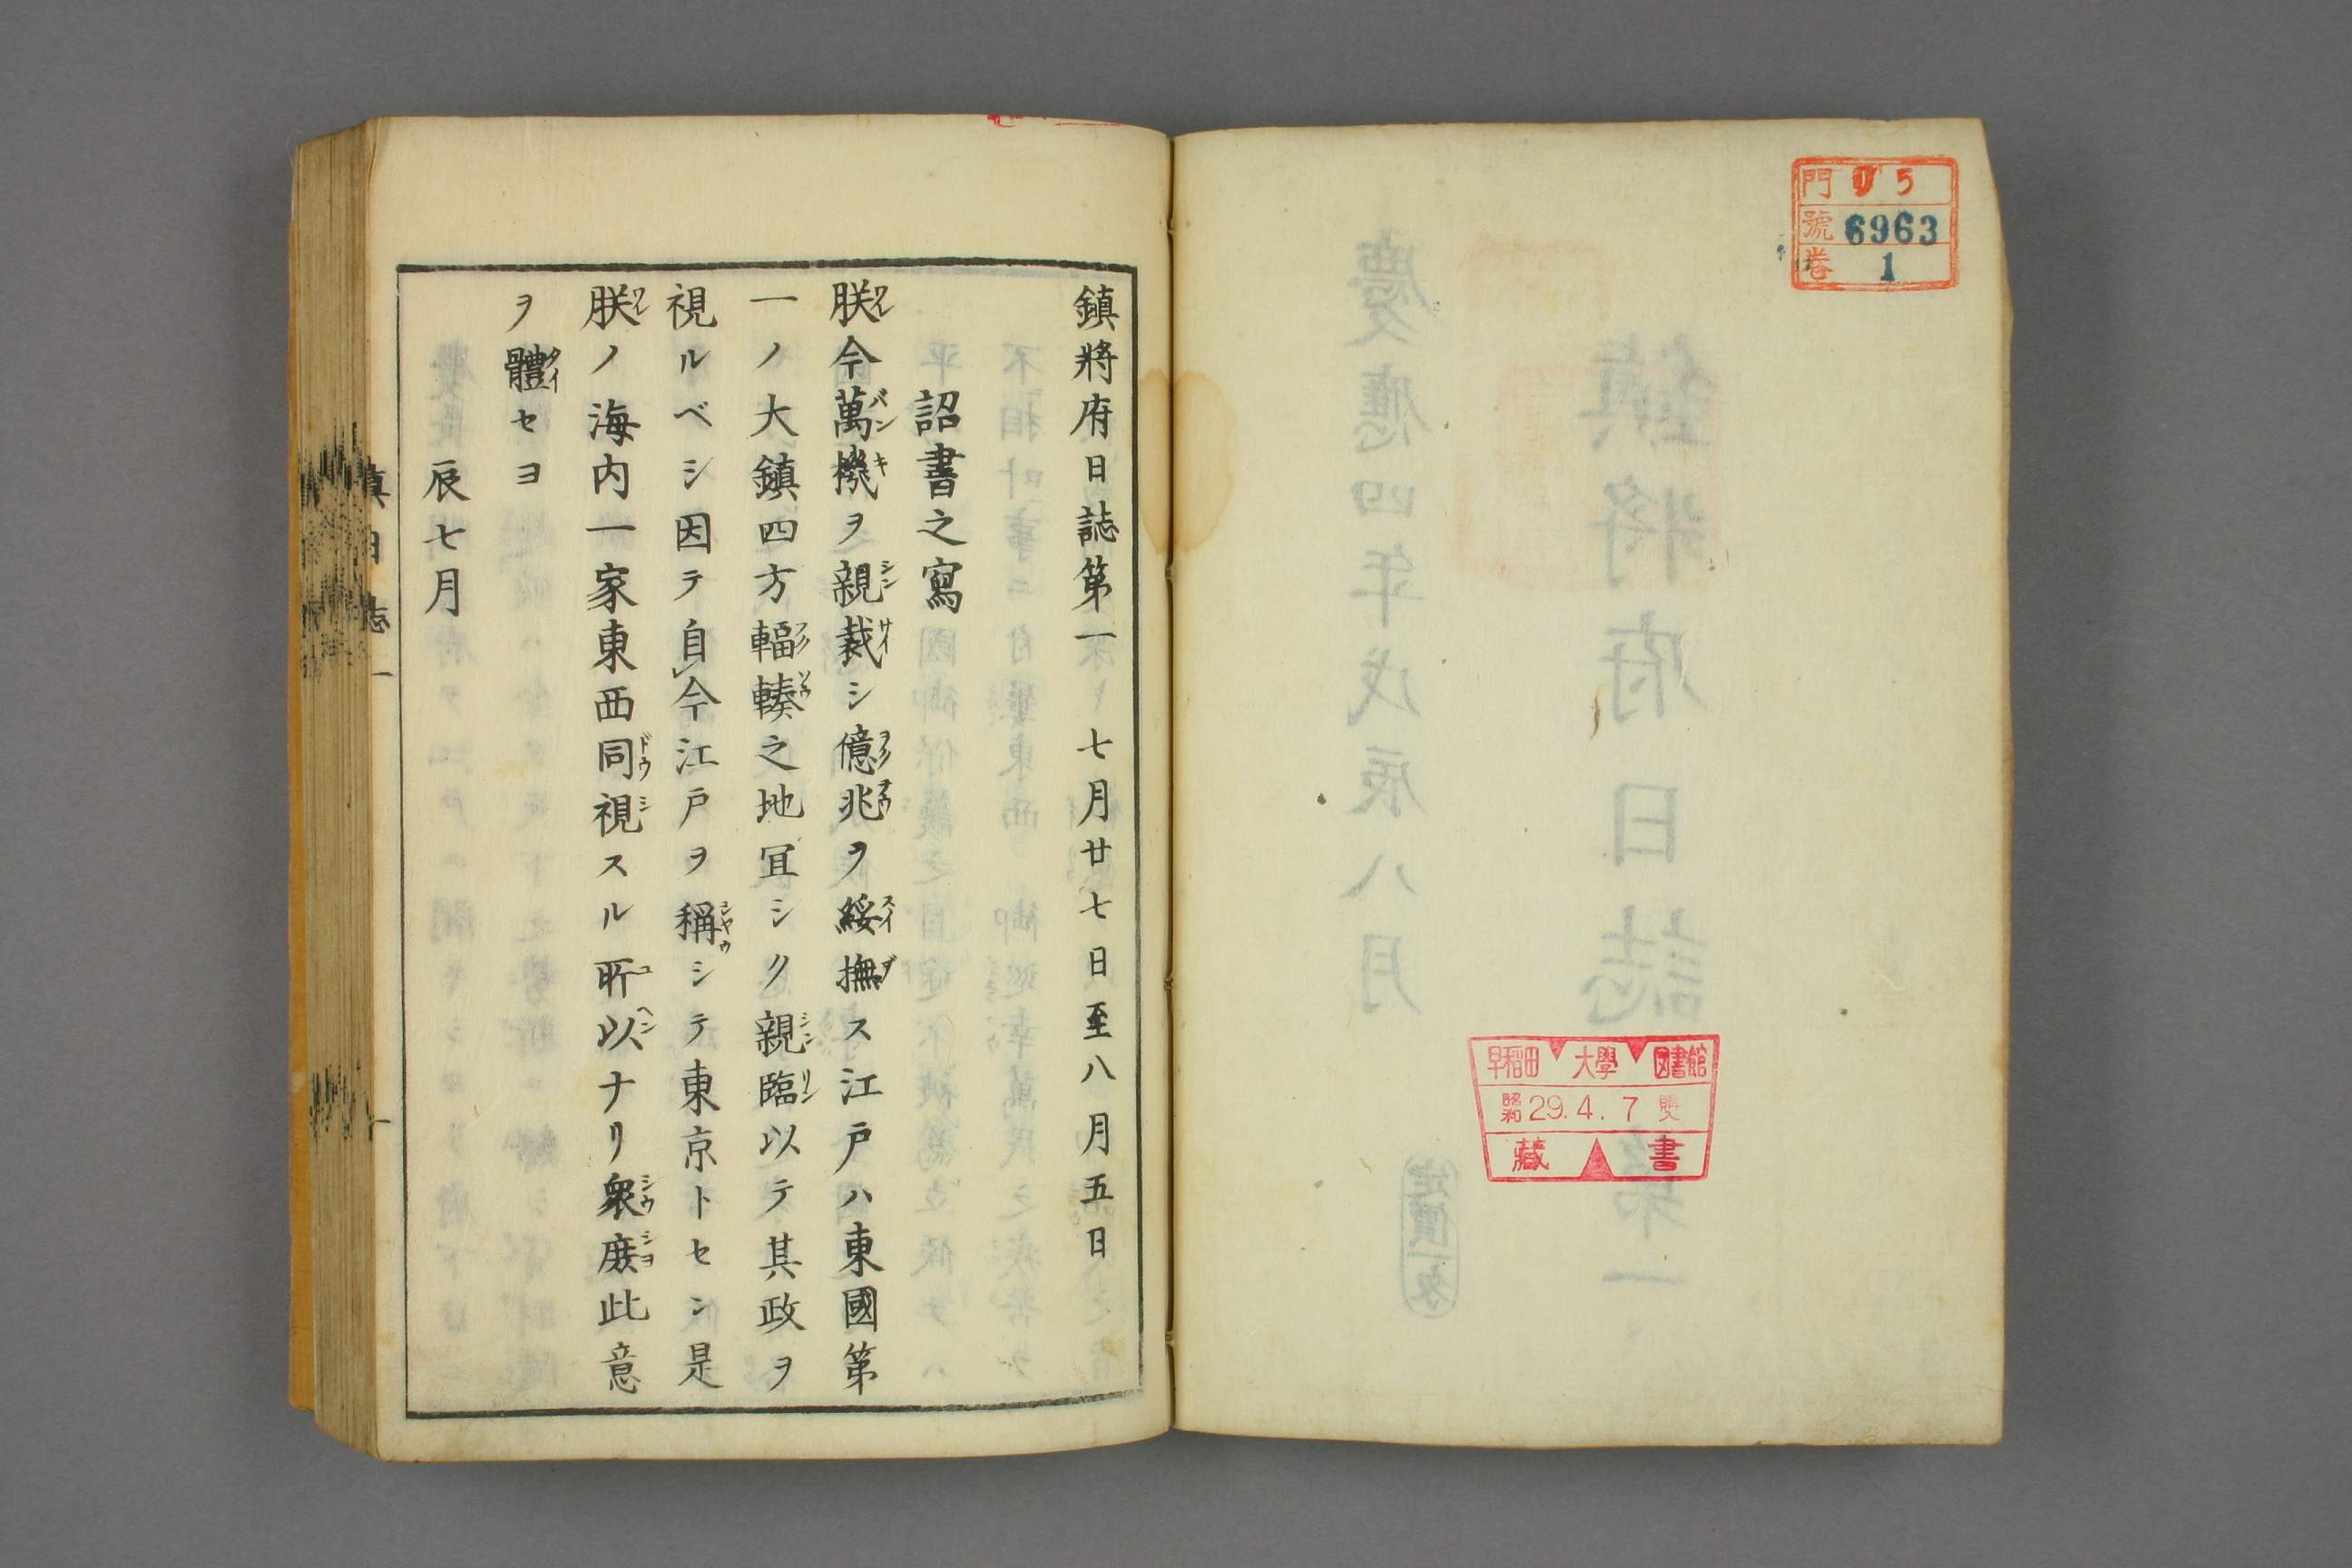 門 05
號 6963
卷 1
早稻田 大學 図書館
昭和 29.4.7
藏書
鎮將府日誌第一
慶應四年戊辰八月
定價一匁
鎮將府日誌第一 七月廿七日至八月五日
詔書之寫
朕今萬機ヲ親裁シ億兆ヲ綏撫ス江戸ハ東國第
一ノ大鎮四方輻輳之地宜シク親臨以テ其政ヲ
視ルベシ因テ自今江戸ヲ稱シテ東京トセン是
朕ノ海内一家東西同視スル所以ナリ衆庶此意
ヲ體セヨ
辰七月